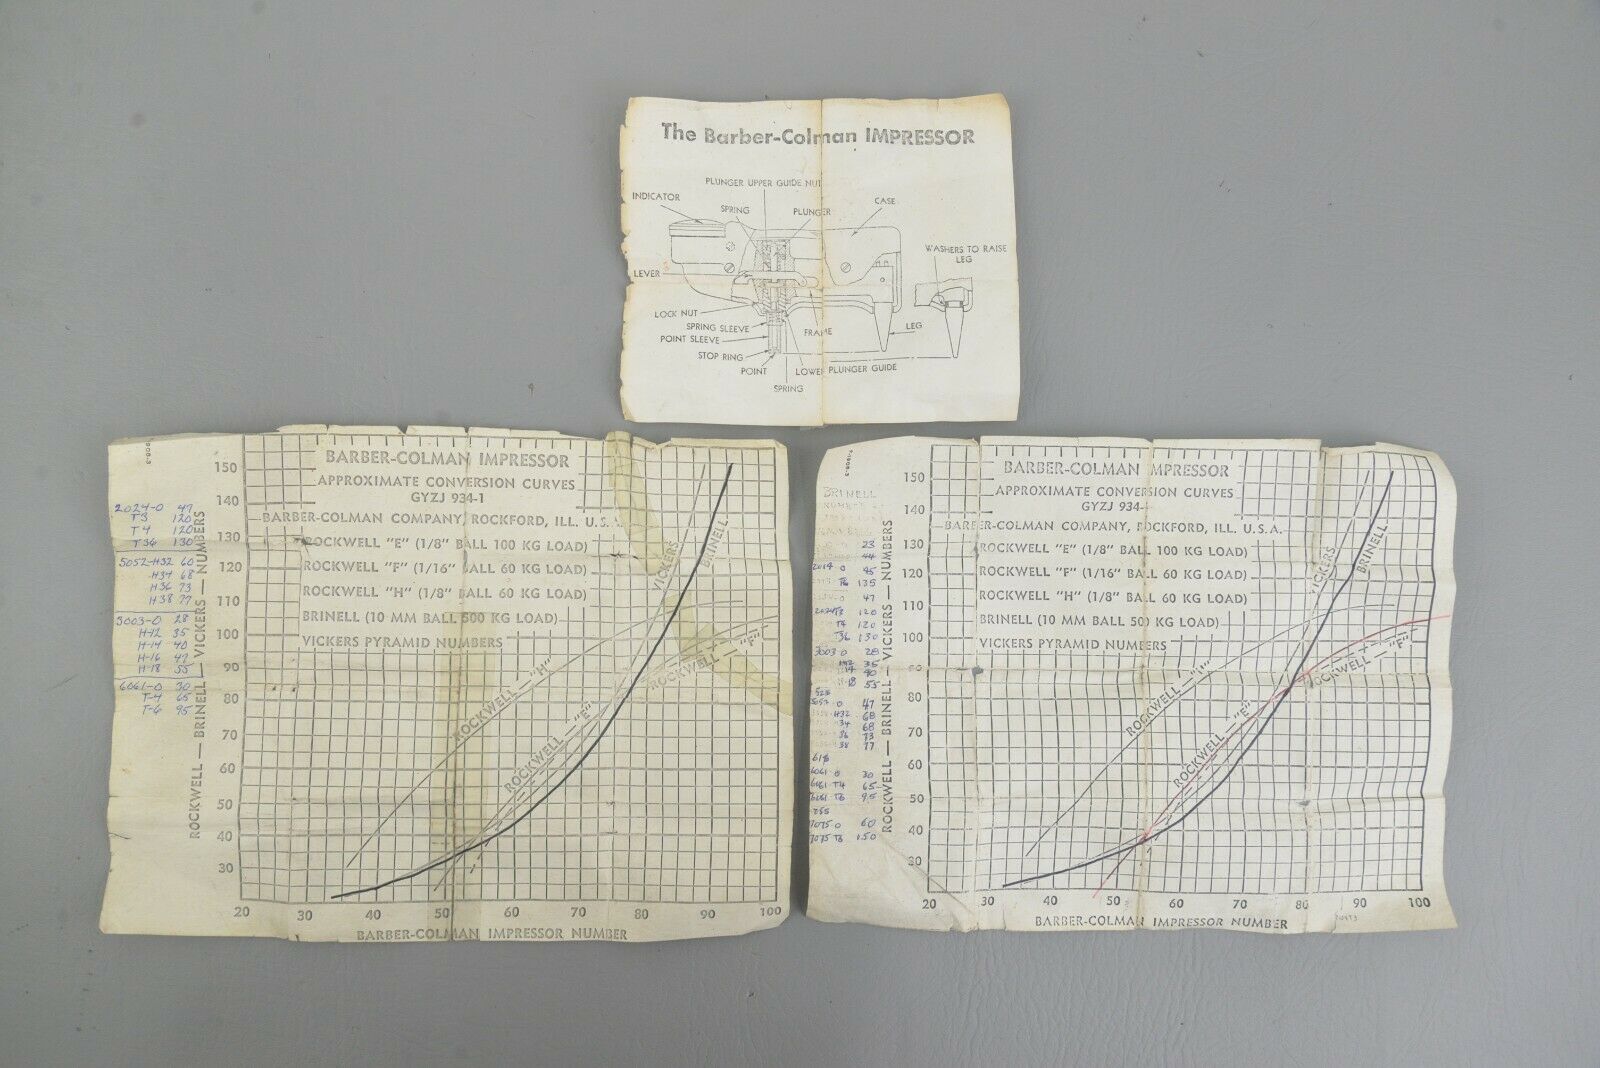 The Barber-Colman IMPRESSOR
PLUNGER UPPER GUIDE NUT
INDICATOR
SPRING
PLUNGER
CASE
WASHERS TO RAISE
LEG
LEVER
LOCK NUT
SPRING SLEEVE
FRAME
LEG
POINT SLEEVE
STOP RING
POINT
LOWER PLUNGER GUIDE
SPRING
BARBER-COLMAN IMPRESSOR
APPROXIMATE CONVERSION CURVES
GYZJ 934-1
BARBER-COLMAN COMPANY, ROCKFORD, ILL. U.S.A.
ROCKWELL "E" (1/8" BALL 100 KG LOAD)
ROCKWELL "F" (1/16" BALL 60 KG LOAD)
ROCKWELL "H" (1/8" BALL 60 KG LOAD)
BRINELL (10 MM BALL 500 KG LOAD)
VICKERS PYRAMID NUMBERS
VICKERS
BRINELL
ROCKWELL - "H"
ROCKWELL - "E"
ROCKWELL - "F"
ROCKWELL — BRINELL — VICKERS — NUMBERS
150
140
130
120
110
100
90
80
70
60
50
40
30
20 30 40 50 60 70 80 90 100
BARBER-COLMAN IMPRESSOR NUMBER
2024-0 47
T3 120
T4 120
T36 130
5052-H32 60
H34 68
H36 73
H38 77
3003-0 28
H-12 35
H-14 40
H-16 47
H-18 55
6061-0 30
T-4 65
T-6 95
BARBER-COLMAN IMPRESSOR
APPROXIMATE CONVERSION CURVES
GYZJ 934-
BARBER-COLMAN COMPANY, ROCKFORD, ILL. U.S.A.
ROCKWELL "E" (1/8" BALL 100 KG LOAD)
ROCKWELL "F" (1/16" BALL 60 KG LOAD)
ROCKWELL "H" (1/8" BALL 60 KG LOAD)
BRINELL (10 MM BALL 500 KG LOAD)
VICKERS PYRAMID NUMBERS
VICKERS
BRINELL
ROCKWELL - "H"
ROCKWELL - "E"
ROCKWELL - "F"
ROCKWELL — BRINELL — VICKERS — NUMBERS
150
140
130
120
110
100
90
80
70
60
50
40
30
20 30 40 50 60 70 80 90 100
BARBER-COLMAN IMPRESSOR NUMBER
BRINELL
23
44
2014 0 45
T6 135
0 47
2024T3 120
T4 120
T36 130
3003 0 28
H12 35
40
H-18 55
0 47
H32 68
34 68
36 73
38 77
6061 0 30
6061-T4 65
6061-T6 95
7075 0 60
7075 T6 150